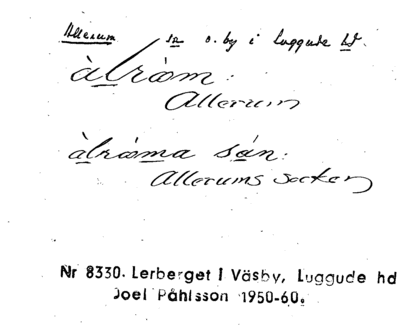 Allerum sn o. by i Luggude hd.
àlråm:
Allerum
àlråma sån:
Allerums socken
Nr 8330. Lerberget i Väsby, Luggude hd
Joel Påhlsson 1950-60.